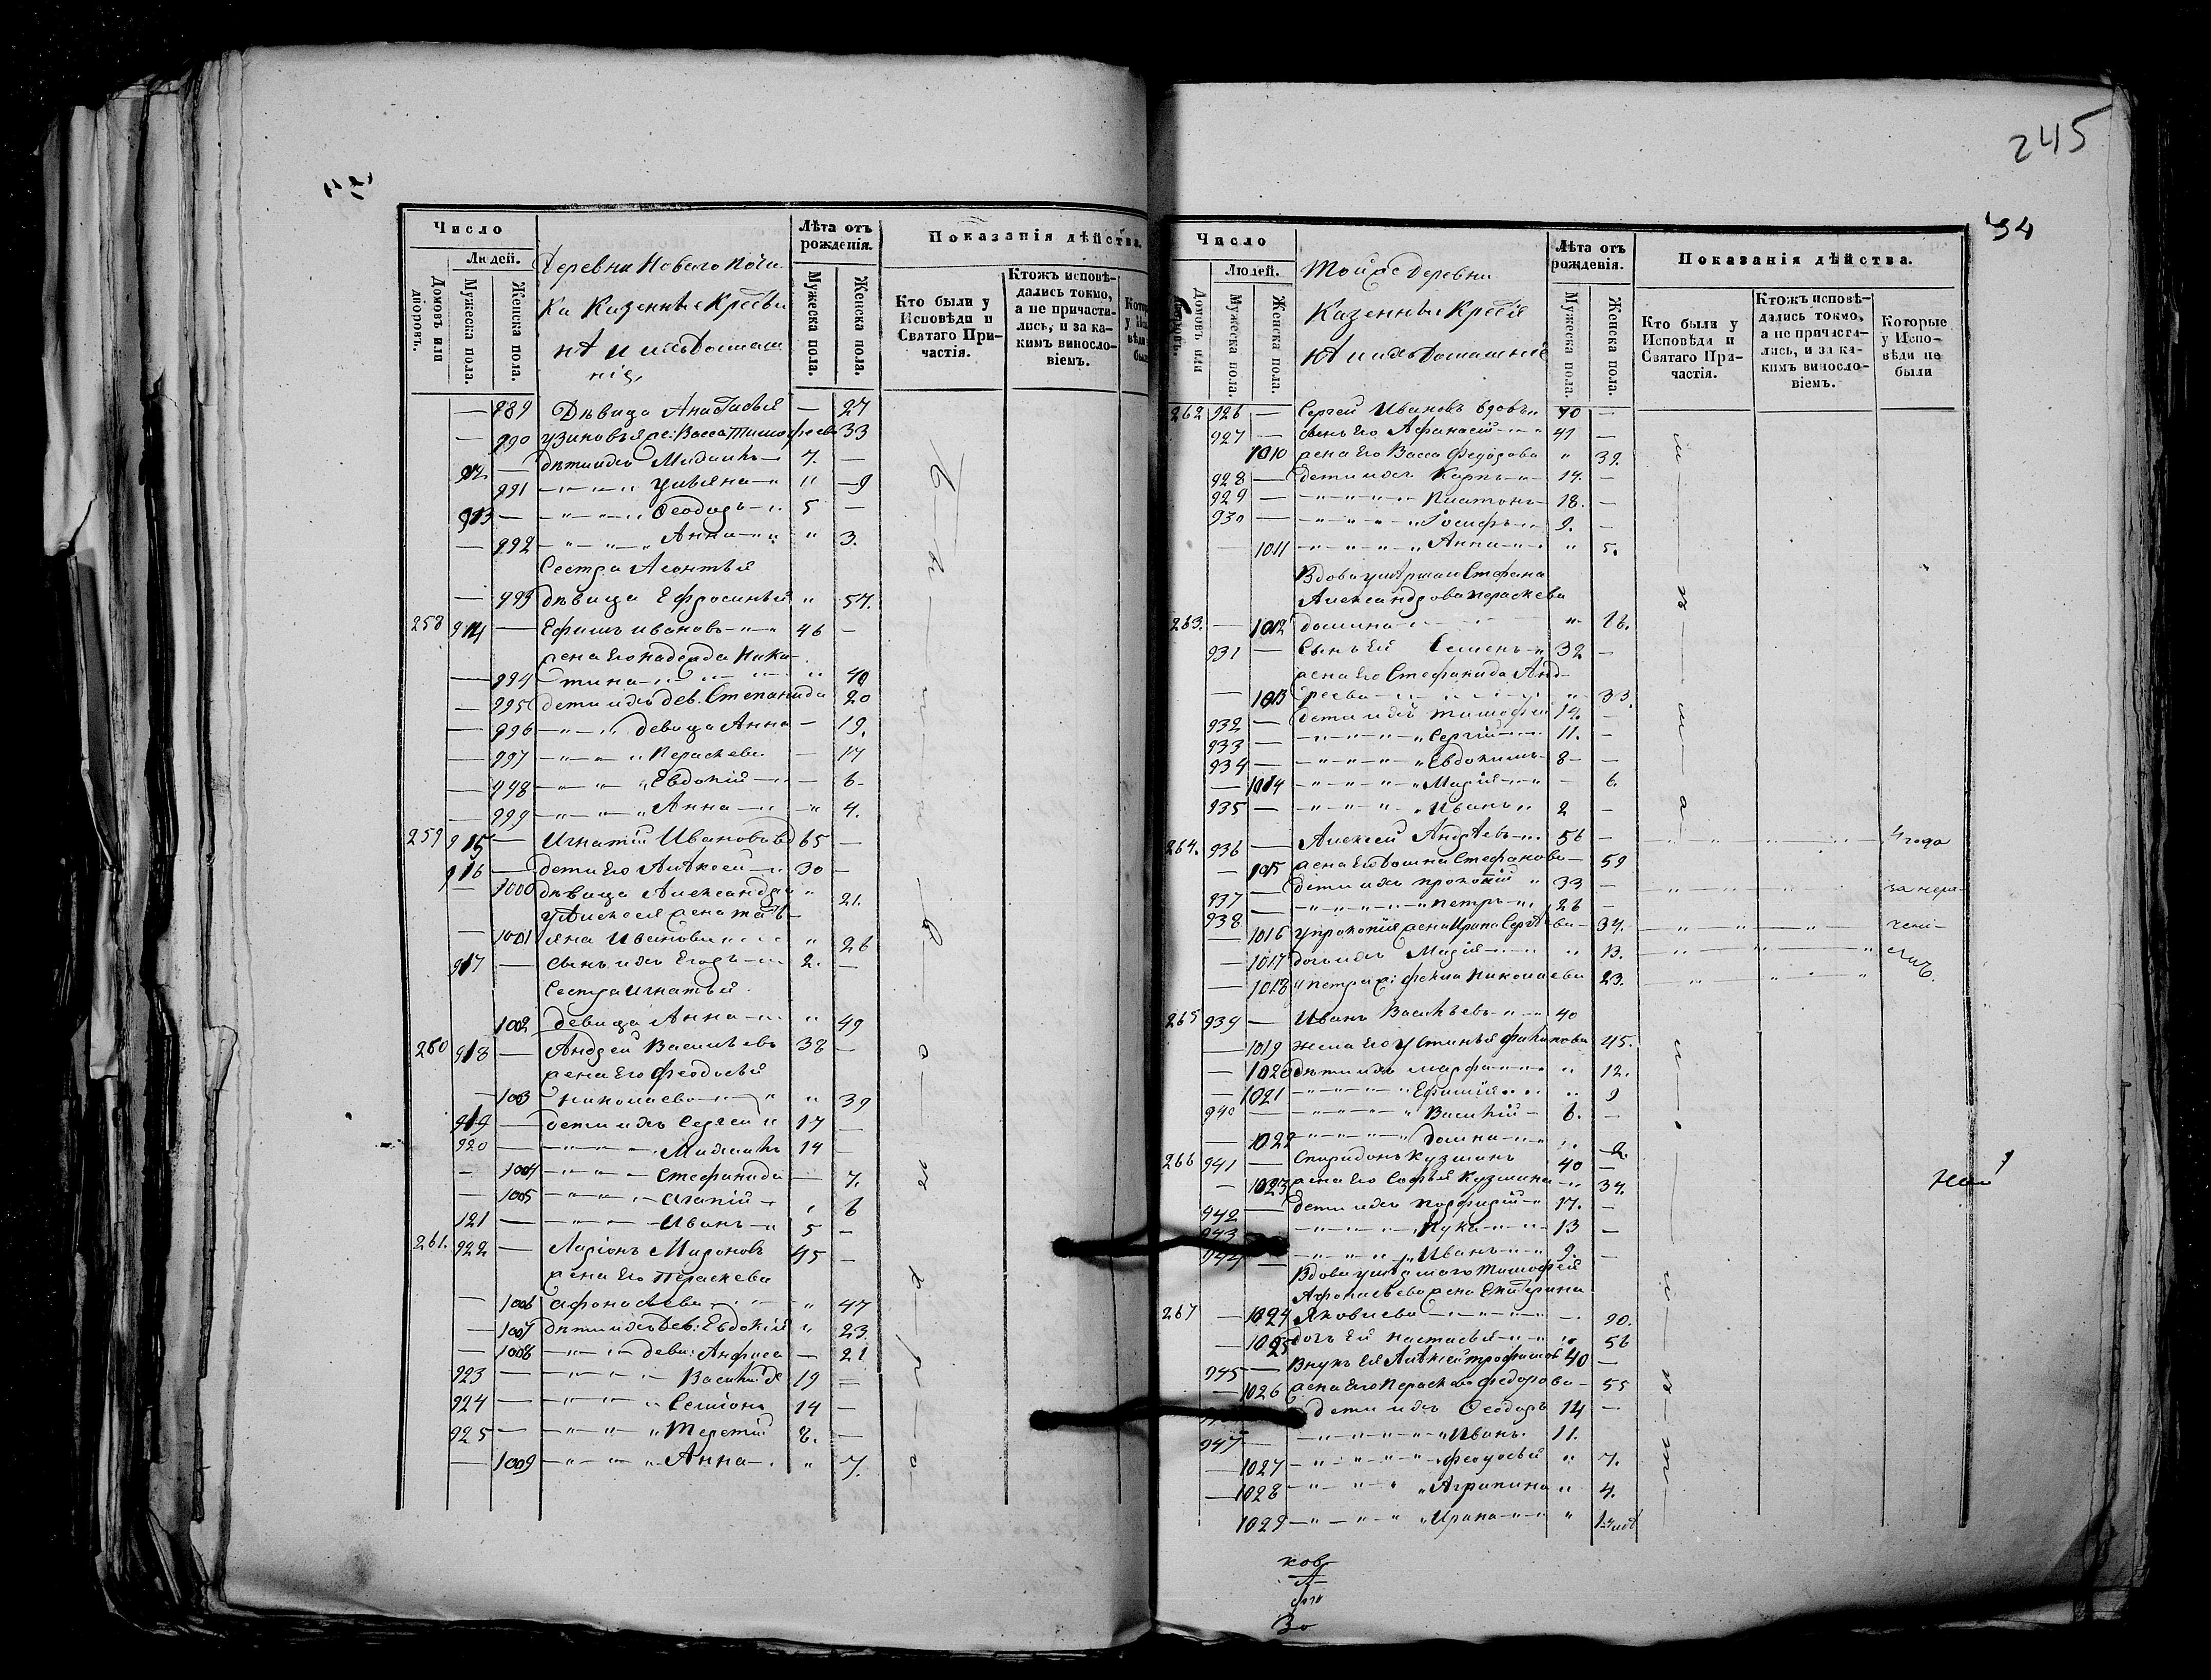 Число
Людей.
Домовъ или дворовъ.
Мужеска пола.
Женска пола.
Деревни Новаго Почи
ка Казенные Кресьи
нѣ и ихъ Домаш
ніе,
Лѣта отъ рожденія.
Мужеска пола.
Женска пола.
Показанія дѣйства.
Кто были у Исповѣди и Святаго Причастія.
Ктожъ исповѣдались токмо, а не причастились, и за какимъ винословіемъ.
— 989 Дѣвица Анастасья — 27
— 990 Васса Тимофеева 33
912 — дѣти ихъ Михаилъ — 7. —
991 — " — " Ульяна — " " — 9
913 — — " — " Ѳеодоръ — " 5 —
— 992 — " — " Анна — " " 3.
Сестра Леонтья
— 993 дѣвица Ефросинья " 57.
258 914 — Ефимъ Ивановъ — " — 46 —
жена его надежда Ники
— 994 тина — " — " 40
— 995 дети ихъ дев. Степанида 20
— 996 — " — " девица Анна — 19.
— 997 — " — " Параскева — 17
— 998 — " — " Евдокія — " — 6 -
— 999 — " — " Анна — " — " 4.
259 915 — Игнатій Ивановъ вд 65 —
916 — дети его Алѣксей — " 30 —
— 1000 дѣвица Александра " 21.
у Алексея жена татѣ-
— 1001 яна Иванова " — " " 26
917 — сынъ ихъ Егоръ — " 2. —
Сестра Игнатья
1002 девица Анна — " " 49
260 918 — Андрей Васильевъ 38 —
жена его Феодосья
— 1003 николаева — " — " " 39
919 — дети ихъ Сергей " 17 —
920 — — " — " Михаилъ 14 —
— 1004 — " — " Стефанида — 7.
— 1005 — " — " Агапій — " 6
121 — — " — " Иванъ — " 5 —
261. 922 — Ларіонъ Мироновъ 45 —
жена его Параскева
— 1006 афонасьева — " — " 47
— 1007 дѣти ихъ Дев: Евдокія " 23.
— 1008 — " — " деви: Анфиса — 21
923 — — " — " Василій 19 —
924 — — " — " Семіонъ 14 —
925 — — " — " Терентій 8. —
— 1009 — " — " Анна — " " 7.
245
94
Число
Людей.
Домовъ или дворовъ.
Мужеска пола.
Женска пола.
Той же деревни
Казенные Кресья
нѣ и ихъ Домашніе
Лѣта отъ рожденія.
Мужеска пола.
Женска пола.
Показанія дѣйства.
Кто были у Исповѣди и Святаго Причастія.
Ктожъ исповѣдались токмо, а не причастились, и за какимъ винословіемъ.
Которые у Исповѣди не были
262 926 — Сергей Ивановъ вдовъ " 70 —
927 — сынъ его Афанасій — " — " 41 —
1010 жена его Васса Федорова " 39.
928 — дети ихъ Карпъ — " — 19. —
929 — — " — " Платонъ — 18. —
930 — — " — " Іосифъ — " 9. —
1011 — " — " Анна — " — " 5.
Вдова умѣршаго Стефана
Александрова параскева
263. — 1012 домина — " — " 76.
931 — Сынъ ей Семенъ — " 32 —
жена его Стефанида Анд-
— 1013 реева — " — " — " 33.
932 — дети ихъ Тимофей 14. —
933 — — " — " Сергій — " 11. —
934 — — " — " Евдокимъ — 8 — —
— 1014 — " — " Марія — " — 6.
935 — — " — " Иванъ " 2 —
264. 936 — Алексей Андрѣевъ — " 56 — 4 года
— 1015 жена его Домна Стефанова — 59
937 — дѣти ихъ прокопій " 33 — за нера-
938 — — " — " петръ — " 26 —
— 1016 у прокопія жена Ирина Сергѣева — 34. чені-
— 1017 дочь ихъ Марія — " — " 13. емъ.
— 1018 у петра ж: фекла Николаева 23.
265 939 — Иванъ Васильевъ — " — 40
— 1019 жена его Устинья филипова 45.
— 1020 дѣти ихъ Марфа — " — " 12.
— 1021 — " — " Ефимія " — " " 9
940 — — " — " Василій — 6. —
— 1022 — " — " Домна — " — " 2.
266 941 — Спиридонъ Кузминъ 40 —
— 1023 жена его Софья Кузмина — " 34.
942 — дети ихъ порфирій — " 17. —
943 — " — " Лука — " — 13 —
944 — — " — " Иванъ — " 9. —
Вдова умѣршаго Тимофея
Афонасьева жена Екатерина
267 — 1024 Яковлева — " — " 90.
— 1025 дочь ей настасья — " — " 56
945 — Внукъ ея Алѣксей трофимовъ 40 —
— 1026 жена его параскева федорова — 55
дети ихъ Ѳеодоръ 14 —
947 — — " — " Иванъ 11.
— 1027 — " — " феодосья " 7.
— 1028 — " — " Агрипина " 4.
1029 — " — " Ирина — " — "